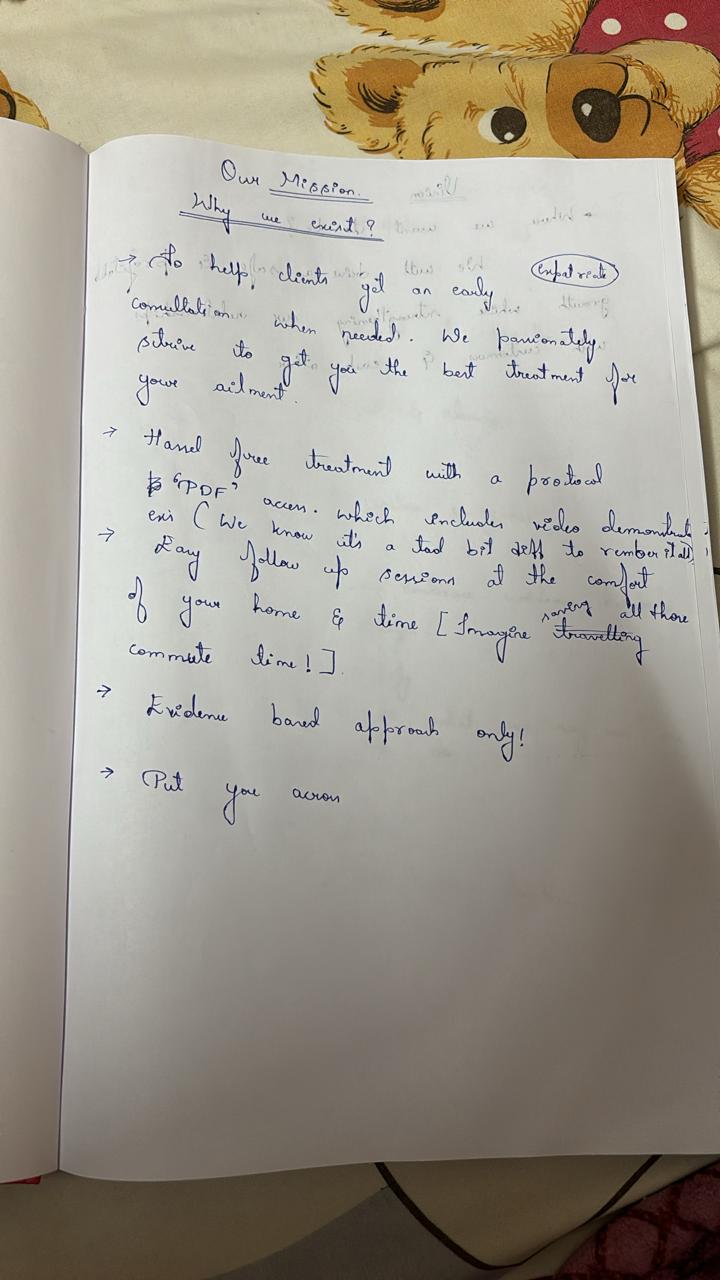 Our Mission.
Why we exist?
→ To help clients get an early
(expatreate)
consultation when needed. We passionately
strive to get you the best treatment for
your ailment.
→ Hassel free treatment with a protocol
"PDF" access. which includes video demonstrate
exis (We know it's a tad bit diff to rember it all)
→ Easy follow up sessions at the comfort
of your home & time [Imagine saving all those
travelling
commute time!].
→ Evidence based approach only!
→ Put you across